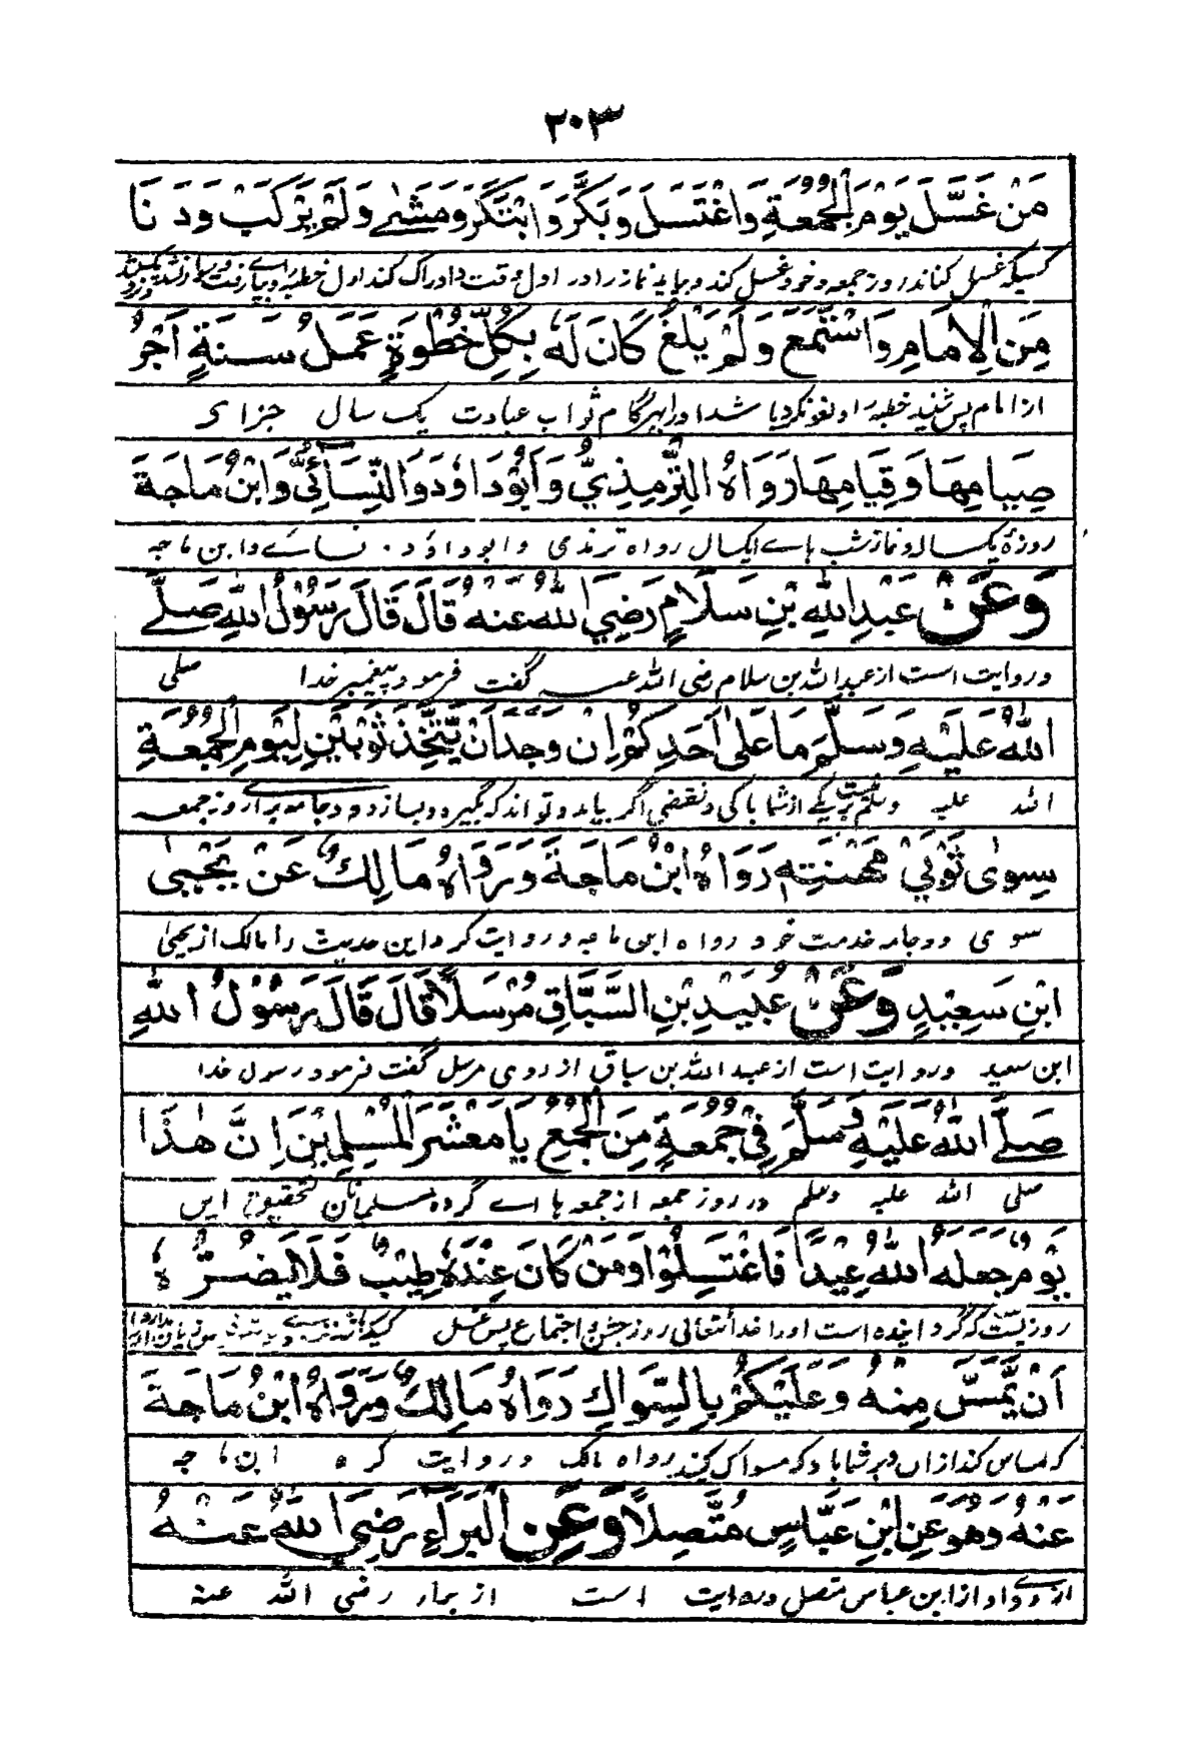 ٢٠٣
مَنْ غَسَّلَ يَوْمَ الْجُمُعَةِ وَاغْتَسَلَ وَبَكَّرَ وَابْتَكَرَ وَمَشٰى وَلَمْ يَرْكَبْ وَدَنَا
کسیکه غسل کناند روز جمعه و خود غسل کند و بیاید نماز را در اول وقت و ادراک کند اول خطبه را و پیاده رفت و
مِنَ الْاِمَامِ وَاسْتَمَعَ وَلَمْ يَلْغُ كَانَ لَهٗ بِكُلِّ خُطْوَةٍ عَمَلُ سَنَةٍ اَجْرُ
از امام پس شنید خطبه را و لغو نکرد باشد او را بهر گام ثواب عبادت یک سال جزای
صِيَامِهَا وَقِيَامِهَا رَوَاهُ التِّرْمِذِيُّ وَاَبُوْدَاوٗدَ وَالنَّسَائِيُّ وَابْنُ مَاجَةَ
روزهٔ یکسال و نماز شب هاے یکسال رواه ترمذی و ابو داؤد . نسائے و ابن ماجه
وَعَنْ عَبْدِ اللهِ بْنِ سَلَامٍ رَضِيَ اللهُ عَنْهُ قَالَ قَالَ رَسُوْلُ اللهِ صَلَّى
و روایت است از عبد الله بن سلام رضی الله عنه گفت فرمود پیغمبر خدا صلی
اللهُ عَلَيْهِ وَسَلَّمَ مَا عَلٰى اَحَدِكُمْ اِنْ وَجَدَ اَنْ يَّتَّخِذَ ثَوْبَيْنِ لِيَوْمِ الْجُمُعَةِ
الله علیه وسلم نیست بر یکے از شما باکی و نقضی اگر بیابد و تواند که بگیرد و بسازد دو جامه براے روز جمعه
سِوٰى ثَوْبَيْ مَهْنَتِهٖ رَوَاهُ ابْنُ مَاجَةَ وَرَوَاهُ مَالِكٌ عَنْ يَحْيٰى
سوی دو جامه خدمت خود رواه ابن ماجه و روایت کرد این حدیث را مالک از یحیٰ
ابْنِ سَعِيْدٍ وَعَنْ عُبَيْدِ بْنِ السَّبَّاقِ مُرْسَلًا قَالَ قَالَ رَسُوْلُ اللهِ
ابن سعید و روایت است از عبد الله بن سباق از روی مرسل گفت فرمود رسول خدا
صَلَّى اللهُ عَلَيْهِ وَسَلَّمَ فِيْ جُمُعَةٍ مِنَ الْجُمَعِ يَا مَعْشَرَ الْمُسْلِمِيْنَ اِنَّ هٰذَا
صلی الله علیه وسلم در روز جمعه از جمعه ها اے گروه مسلمانان تحقیق این
يَوْمٌ جَعَلَهُ اللهُ عِيْدًا فَاغْتَسِلُوْا وَمَنْ كَانَ عِنْدَهٗ طِيْبٌ فَلَا يَضُرُّهٗ
روزیست که گردانیده است او را خدا تعالی روز جشن و اجتماع پس غسل
اَنْ يَّمَسَّ مِنْهُ وَعَلَيْكُمْ بِالسِّوَاكِ رَوَاهُ مَالِكٌ وَرَوَاهُ ابْنُ مَاجَةَ
که مساس کند ازان و بر شما باد که مسواک کنید رواه مالک و روایت کرده ابن ماجه
عَنْهُ وَهُوَ عَنِ ابْنِ عَبَّاسٍ مُتَّصِلًا وَعَنِ الْبَرَاءِ رَضِيَ اللهُ عَنْهُ
ازوے و او از ابن عباس متصل و روایت است از براء رضی الله عنه